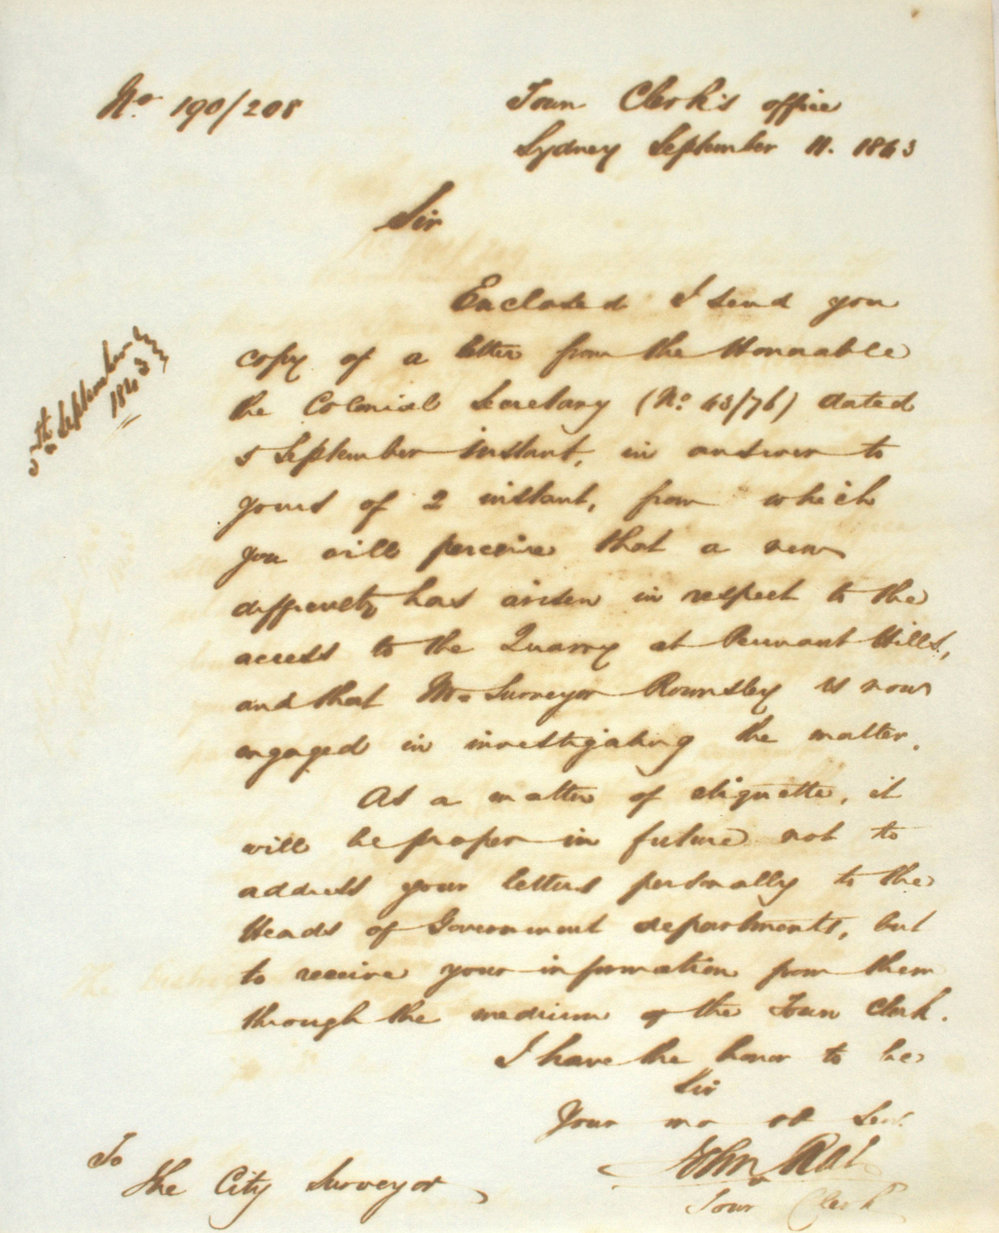 No. 190/208
Town Clerk's office
Sydney September 11. 1843
Sir
Enclosed I send you
copy of a letter from the Honorable
the Colonial Secretary (No. 43/76) dated
5 September instant, in answer to
yours of 2 instant, from which
you will perceive that a new
difficulty has arisen in respect to the
access to the Quarry at Pennant Hills,
and that Mr Surveyor Rownsley is now
engaged in investigating the matter.
5th September
1843
As a matter of etiquette, it
will be proper in future not to
address your letters personally to the
Heads of Government departments, but
to receive your information from them
through the medium of the Town Clerk.
I have the honor to be
Sir
Your mo ob Ser.
John Rae
Town Clerk
To
The City Surveyor